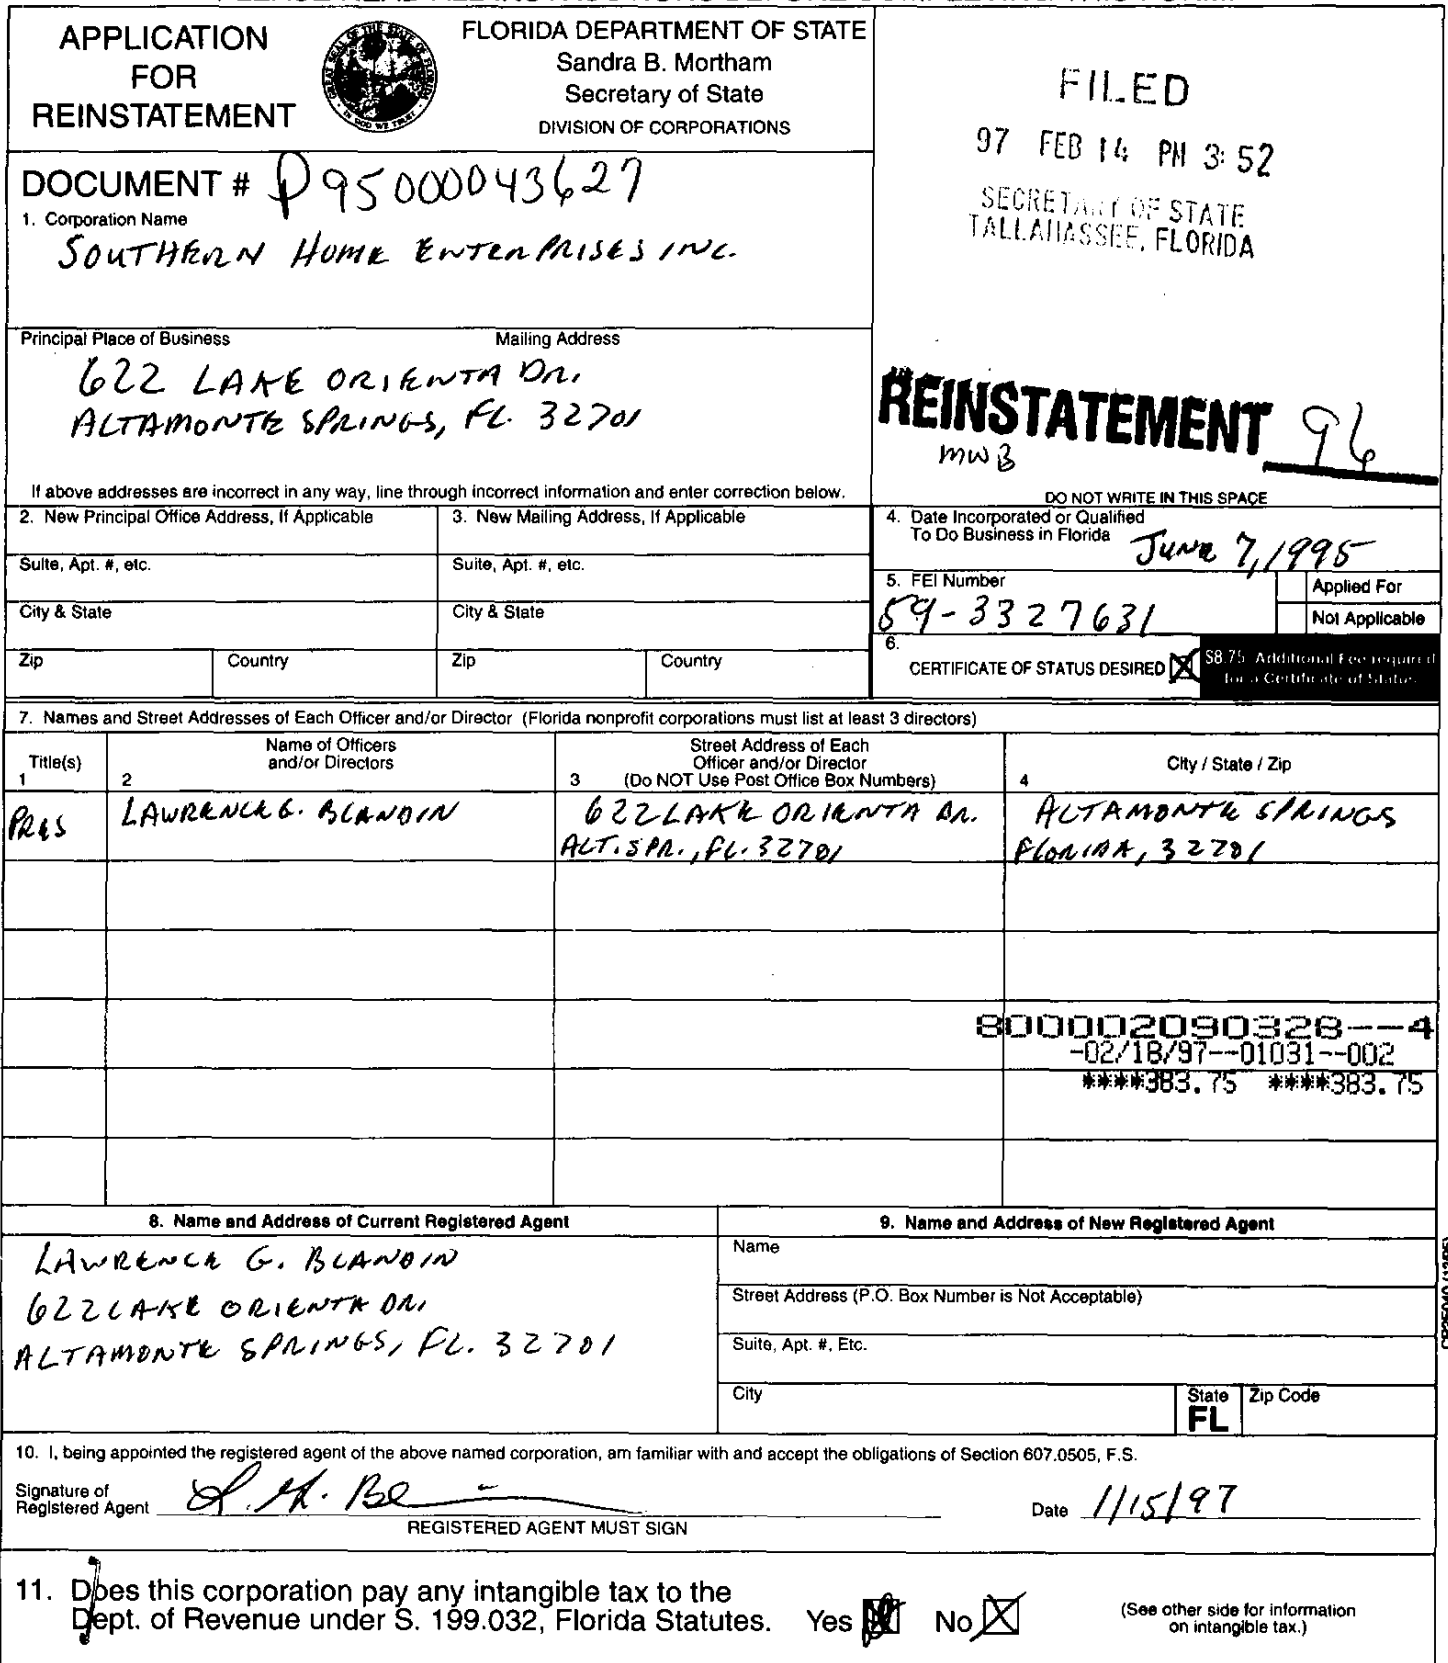 APPLICATION
FOR
REINSTATEMENT
FLORIDA DEPARTMENT OF STATE
Sandra B. Mortham
Secretary of State
DIVISION OF CORPORATIONS
FILED
97 FEB 14 PM 3:52
SECRETARY OF STATE
TALLAHASSEE, FLORIDA
DOCUMENT # P95000043627
1. Corporation Name
SOUTHERN HOME ENTERPRISES INC.
Principal Place of Business Mailing Address
622 LAKE ORIENTA DR.
ALTAMONTE SPRINGS, FL. 32701
REINSTATEMENT 96
MWB
If above addresses are incorrect in any way, line through incorrect information and enter correction below.
DO NOT WRITE IN THIS SPACE
2. New Principal Office Address, If Applicable
3. New Mailing Address, If Applicable
4. Date Incorporated or Qualified
To Do Business in Florida June 7, 1995
Suite, Apt. #, etc.
Suite, Apt. #, etc.
5. FEI Number
59-3327631
Applied For
Not Applicable
City & State
City & State
6.
CERTIFICATE OF STATUS DESIRED X
$8.75 Additional Fee required
for a Certificate of Status
Zip Country Zip Country
7. Names and Street Addresses of Each Officer and/or Director (Florida nonprofit corporations must list at least 3 directors)
Title(s)
1
Name of Officers
and/or Directors
2
Street Address of Each
Officer and/or Director
3 (Do NOT Use Post Office Box Numbers)
City / State / Zip
4
PRES
LAWRENCE G. BLANDIN
622 LAKE ORIENTA DR.
ALT. SPR., FL. 32701
ALTAMONTE SPRINGS
FLORIDA, 32701
800002090328--4
-02/18/97--01031--002
****383.75 ****383.75
8. Name and Address of Current Registered Agent
LAWRENCE G. BLANDIN
622 LAKE ORIENTA DR.
ALTAMONTE SPRINGS, FL. 32701
9. Name and Address of New Registered Agent
Name
Street Address (P.O. Box Number is Not Acceptable)
Suite, Apt. #, Etc.
City State Zip Code
FL
10. I, being appointed the registered agent of the above named corporation, am familiar with and accept the obligations of Section 607.0505, F.S.
Signature of
Registered Agent
Date 1/15/97
REGISTERED AGENT MUST SIGN
11. Does this corporation pay any intangible tax to the
Dept. of Revenue under S. 199.032, Florida Statutes. Yes No X
(See other side for information
on intangible tax.)